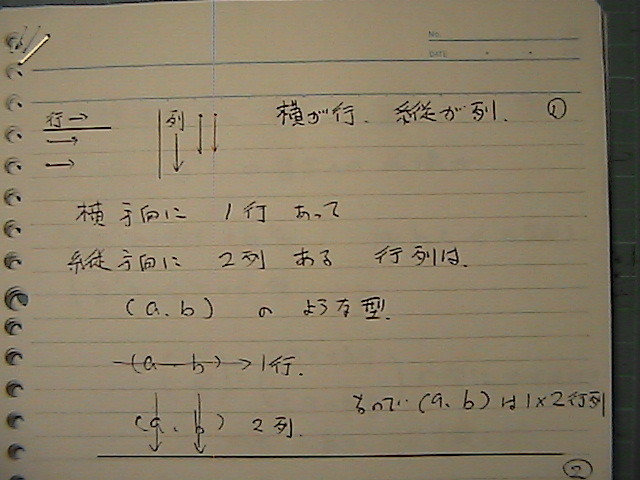 No.
DATE
行→ 列 横が行. 縦が列. ①
横方向に 1行 あって
縦方向に 2列 ある 行列は.
(a.b) の ような型.
(a b) → 1行.
(a, b) 2列. よって (a, b) は 1×2行列
②